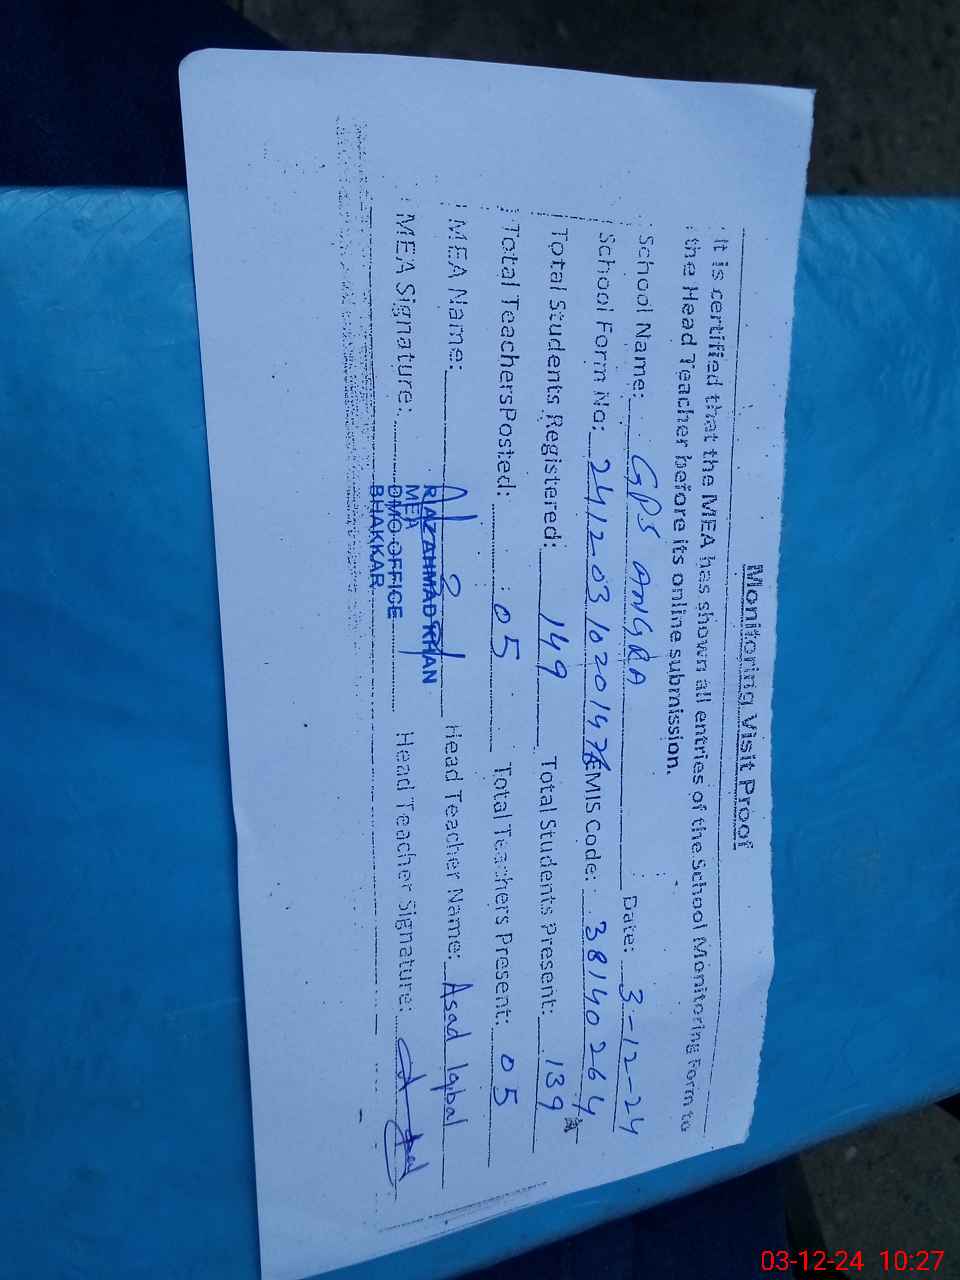 Monitoring Visit Proof
It is certified that the MEA has shown all entries of the School Monitoring Form to
the Head Teacher before its online submission.
School Name: GPS ANGRA Date: 3-12-24
School Form No: 24120310201476 EMIS Code: 38140264
Total Students Registered: 149 Total Students Present: 139
Total TeachersPosted: 05 Total Teachers Present: 05
MEA Name: Head Teacher Name: Asad Iqbal
MEA Signature: Head Teacher Signature:
RIAZ AHMAD KHAN
MEA
DMO OFFICE
BHAKKAR
03-12-24 10:27